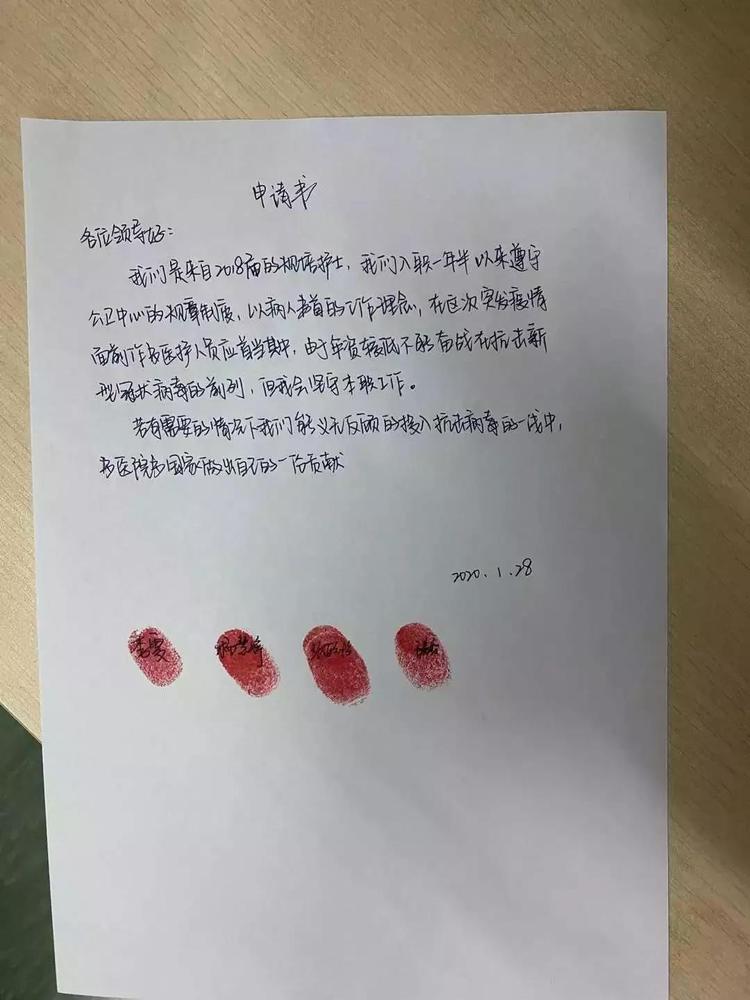 申请书
各位领导好：
我们是来自2018届的规培护士，我们入职一年半以来遵守
公卫中心的规章制度，以病人者首的工作理念，在这次突发疫情
面前作为医护人员应首当其中，由于年资较低不能奋战在抗击新
型冠状病毒的前列，但我会坚守本职工作。
若有需要的情况下我们能义无反顾的投入抗击病毒的一线中，
为医院为国家做出自己的一份贡献
2020.1.28
李雯